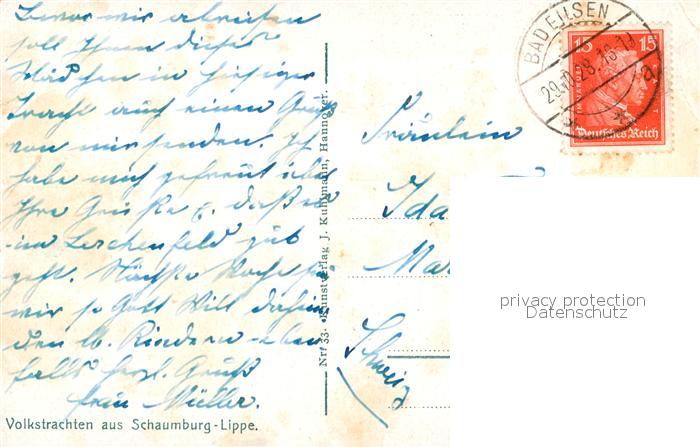 Bevor wir abreisen
soll Ihnen dieses
Mädchen in hiesiger
Tracht auch einen Gruß
von mir senden. Ich
habe mich gefreut über
Ihre Grüße u. daß es
im Lerchenfeld gut
geht. Nächste Woche
wir so Gott will daheim
den lb. Kindern eben-
falls herzl. Gruß
Frau Müller.
Volkstrachten aus Schaumburg-Lippe.
Nr. 33. Kunstverlag J. Kuhlmann, Hannover.
BAD EILSEN
29.
15 15
Deutsches Reich
Fräulein
Ida
Schweiz
privacy protection
Datenschutz